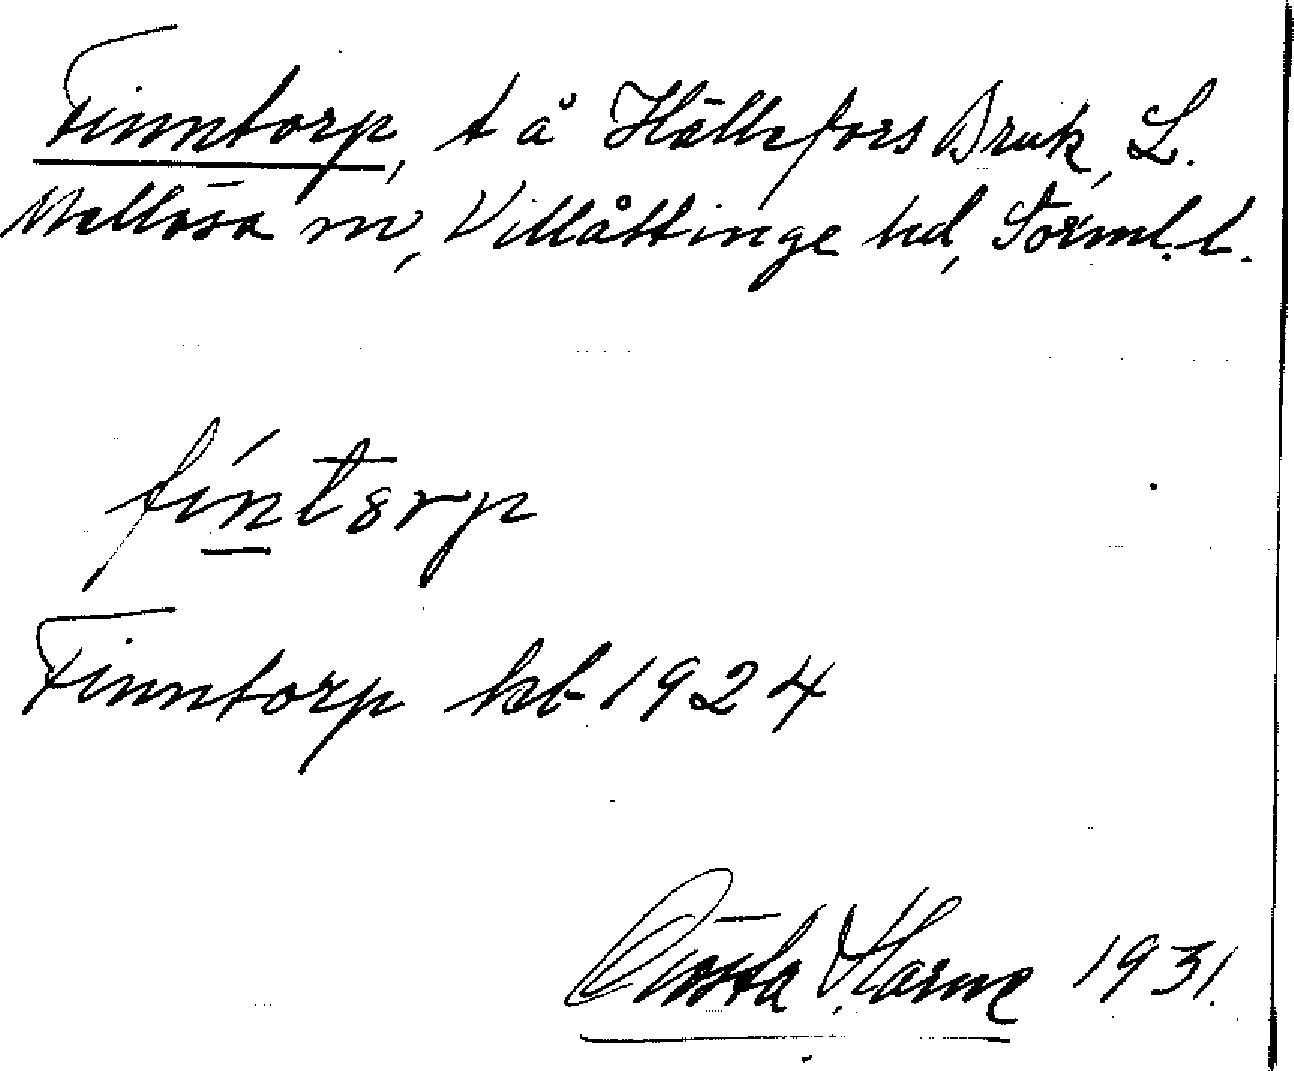 Finntorp, t å Hällefors Bruk, L.
Mellösa sn, Villåttinge hd, Sörml. l.
fíntərp
Finntorp kb 1924
Gösta Harne 1931.